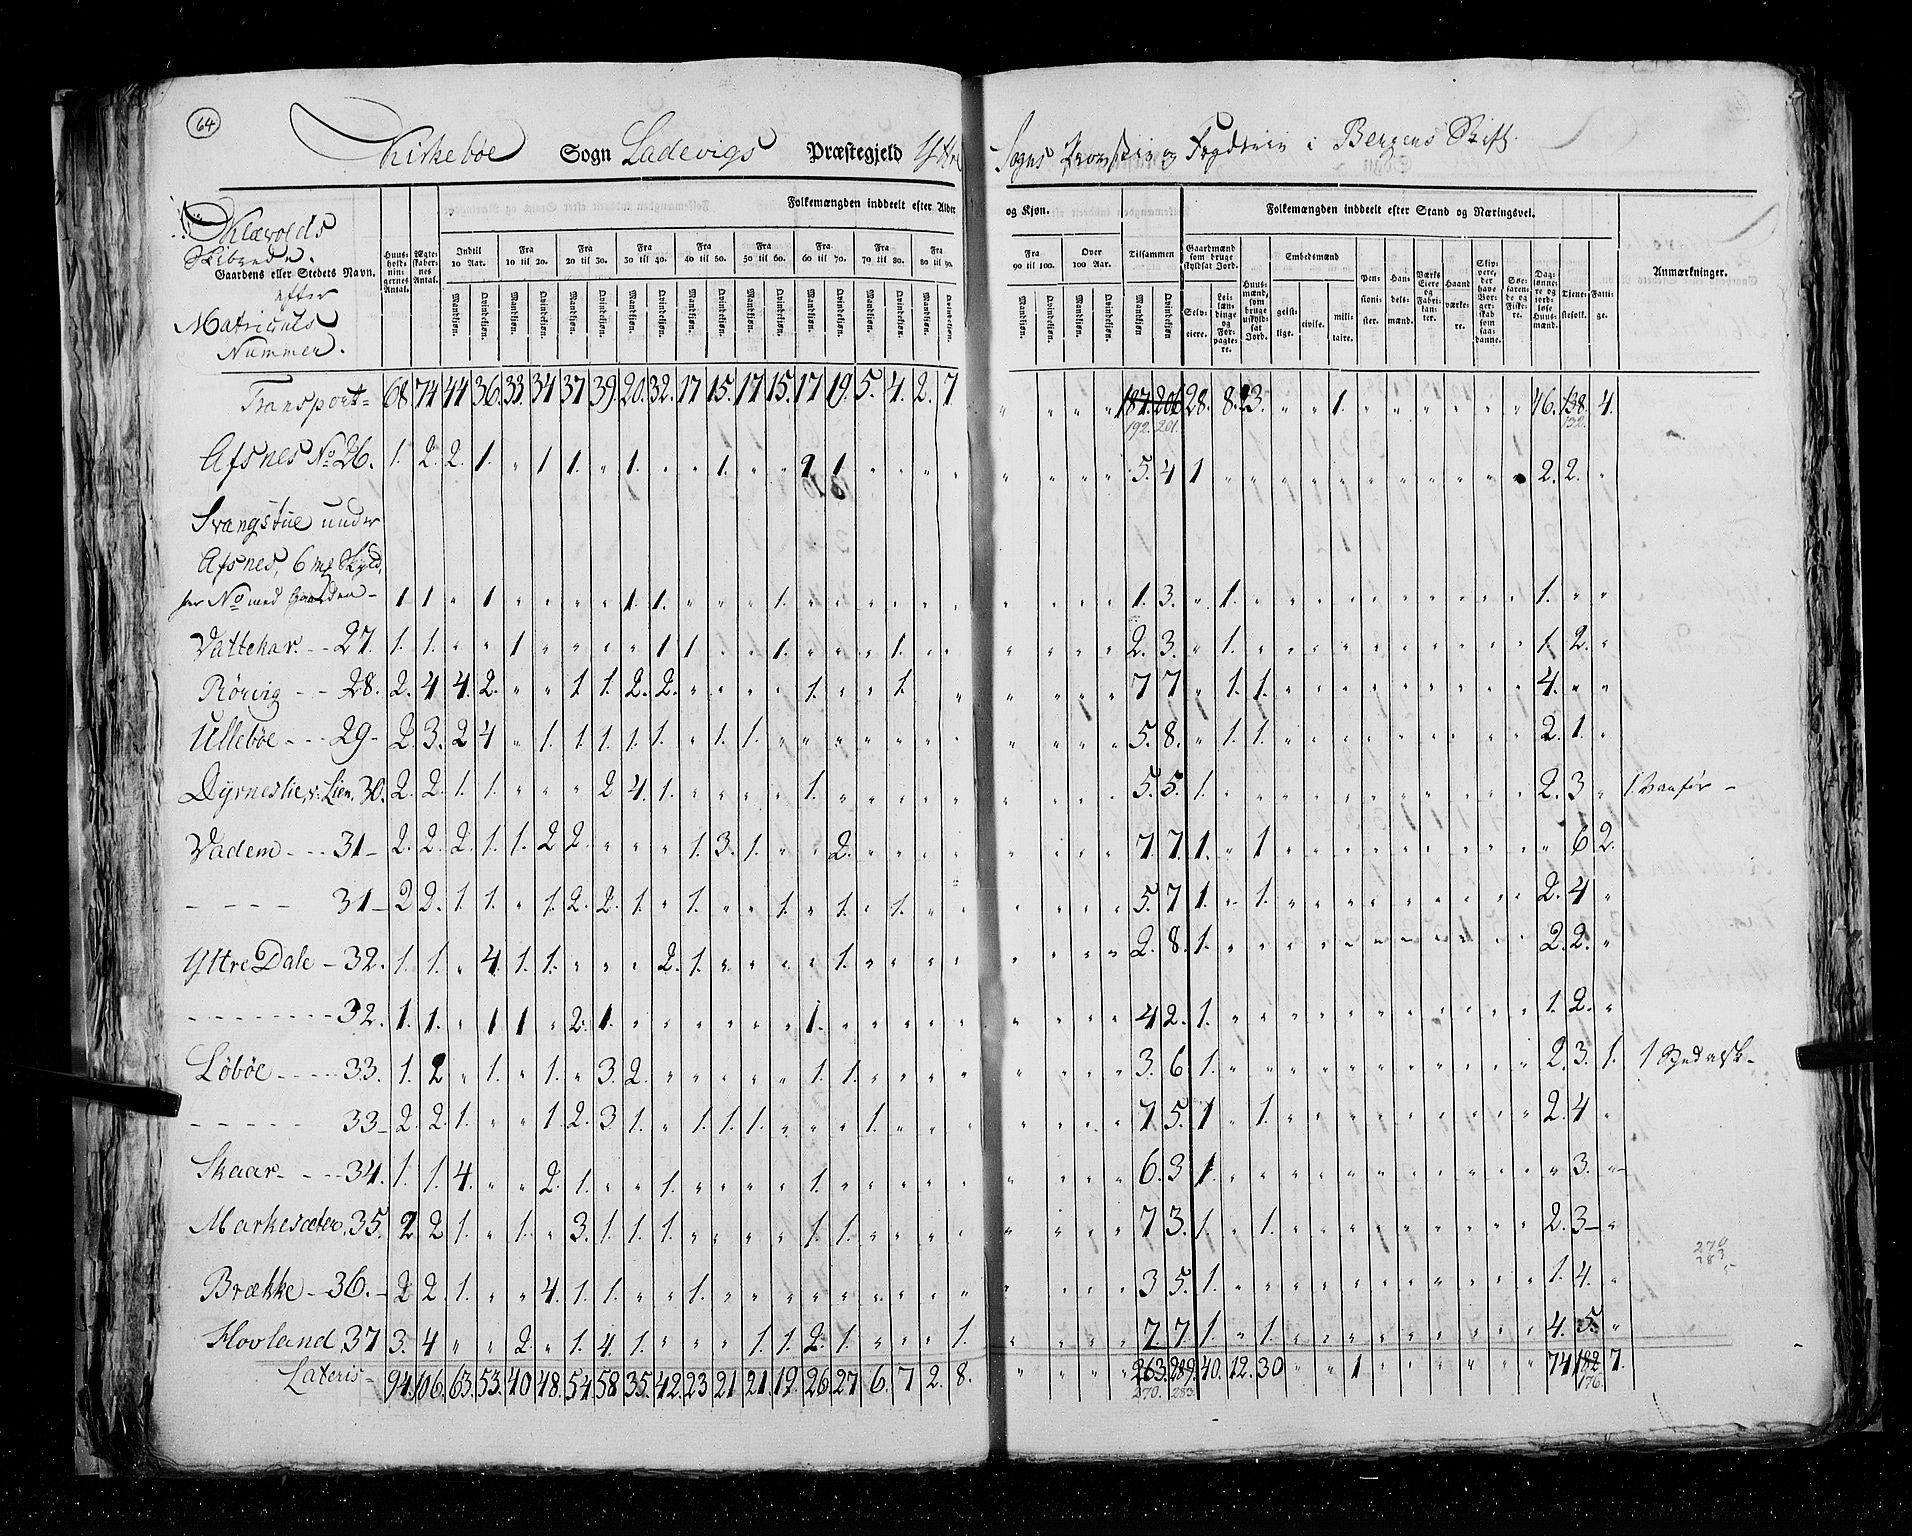 64
Kirkebøe Sogn Ladevigs Præstegjeld Yttre Sogns Provstie og Fogderie i Bergens Stift.
Klævolds
Skibrede.
Gaardens eller Stedets Navn.
efter
Matriculs
Nummer.
Huusholdningernes Antal.
Ægteskabernes Antal.
Folkemængden inddeelt efter Alder og Kjøn.
Folkemængden inddeelt efter Stand og Næringsvei.
Anmærkninger.
Indtil 10 Aar. Fra 10 til 20. Fra 20 til 30. Fra 30 til 40. Fra 40 til 50. Fra 50 til 60. Fra 60 til 70. Fra 70 til 80. Fra 80 til 90. Fra 90 til 100. Over 100 Aar. Tilsammen
Mandkjøn. Qvindekjøn.
Gaardmænd som bruge skyldsat Jord. Selveiere. Leilændinge og Forpagtere. Huusmænd, som bruge uskyldsat Jord. Embedsmænd geistlige. civile. militaire. Pensionister. Handelsmænd. Værks Eiere og Fabrikanter. Haandværkere. Skippere, der have Borgerskab som saadanne. Søefarende og Fiskere. Daglønnere og jordløse Huusmænd. Tjenestefolk. Fattige.
Transport= 68 74 44 36. 33. 34 37 39. 20. 32. 17 15. 17 15. 17 19. 5. 4. 2. 7 " " " " 187. 206 28. 8. 23. " " 1. " " " " " " 46. 138. 4.
192. 201. 132.
Afsnes No 26. 1. 2. 2. 1. " 1 1. " 1. " " 1. " " 1 1. " " " " " " " " 5. 4 1 " " " " " " " " " " " 2. 2. "
Svangstue under
Afsnes, 6 mk Skyld,
har No med Gaarden - 1 1 " 1. " " " " 1. 1. " " " 1. " " " " " " " " " " 1. 3. " 1. " " " " " " " " " " 1. " "
Vattekar. -- 27. 1. 1. " " 1 " " " " 1 1. " " 1. " " " 1. " " " " " " 2. 3. " 1. " " " " " " " " " " 1. 2. "
Rörvig -- 28. 2. 4 4. 2. " " 1 1. 2. 2. " " " " 1. " " 1. " " " " " " 7 7. " 1. 1. " " " " " " " " " 4. " "
Ullebøe --- 29- 2. 3. 2 4 " 1. 1. 1. 1. 1. " 1. 1. " " " " " " " " " " " 5. 8. " 1. 1. " " " " " " " " " 2. 1. "
Dyrneslie, v. Lien. 30. 2. 2. 1. 1. " " " 2 4. 1. " " " " 1. " " " " " " " " " 5. 5. 1. " " " " " " " " " " " 2. 3 " 1 Vanför -
Vadem --- 31- 2. 2. 2. 1. 1. 2 2. " " " 1. 3. 1. " " 2. " " " " " " " " 7. 7. 1. " 1. " " " " " " " " " " 6 2.
- - - - 31- 2 2. 1. 1. " 1. 2. 2. 1. " 1. " " 1. " 1. " 1. " " " " " " 5. 7 1. " 1. " " " " " " " " " 2. 4 "
Yttre Dale - 32. 1. 1. " 4. 1. 1. " " " 2. 1. " " " " 1. " " " " " " " " 2. 8. 1. " " " " " " " " " " " 2. 2. "
- - - - - - - 32. 1. 1. " 1 1 " 2. 1. " " " " " " 1. " " " " " " " " " 4 2. 1. " " " " " " " " " " " 1. 2. "
Löböe ---- 33. 1. 2 " 1. " 1. " 3. 2. " " " " " 1. 1. " " " " " " " " 3. 6 1. " " " " " " " " " " " 2. 3. 1. 1 Spedalsk-
- - - - - 33- 2. 2. 1. " " 1 2. 3. 1. " 1. 1. 1. " " " 1. " " " " " " " 7 5. 1 " 1. " " " " " " " " " 2. 4 "
Skaar- --- 34. 1. 1. 4. " " 2. 1. " " 1. " " " " 1. " " " " " " " " " 6. 3 1. " " " " " " " " " " " " 3. "
Markesæter, 35. 2 2 1. " 1. " 3. 1. 1. 1. " " " " 1. 1. " " " " " " " " 7 3. 1. " 1. " " " " " " " " " 2. 3- "
270
283
Brække - 36. - 2 2. 1. " " 4. 1. 1. " " 1. " " " " " " " " " " " " " 3 5. 1. " " " " " " " " " " " 1. 4. "
Hovland, 37 3. 4 " " 2. " 1. 4. 1. " " " 1. 1. 2. 1. " " " 1. " " " " 7 7. 1. " 1. " " " " " " " " " 4. 5. "
Lateris - 94. 106. 63. 53. 40 48. 54 58. 35. 42. 23 21 21. 19. 26. 27 6. 7 2. 8. " " " " 263. 289. 40. 12. 30 " " 1 " " " " " " 74 182 7.
270. 283. 176.